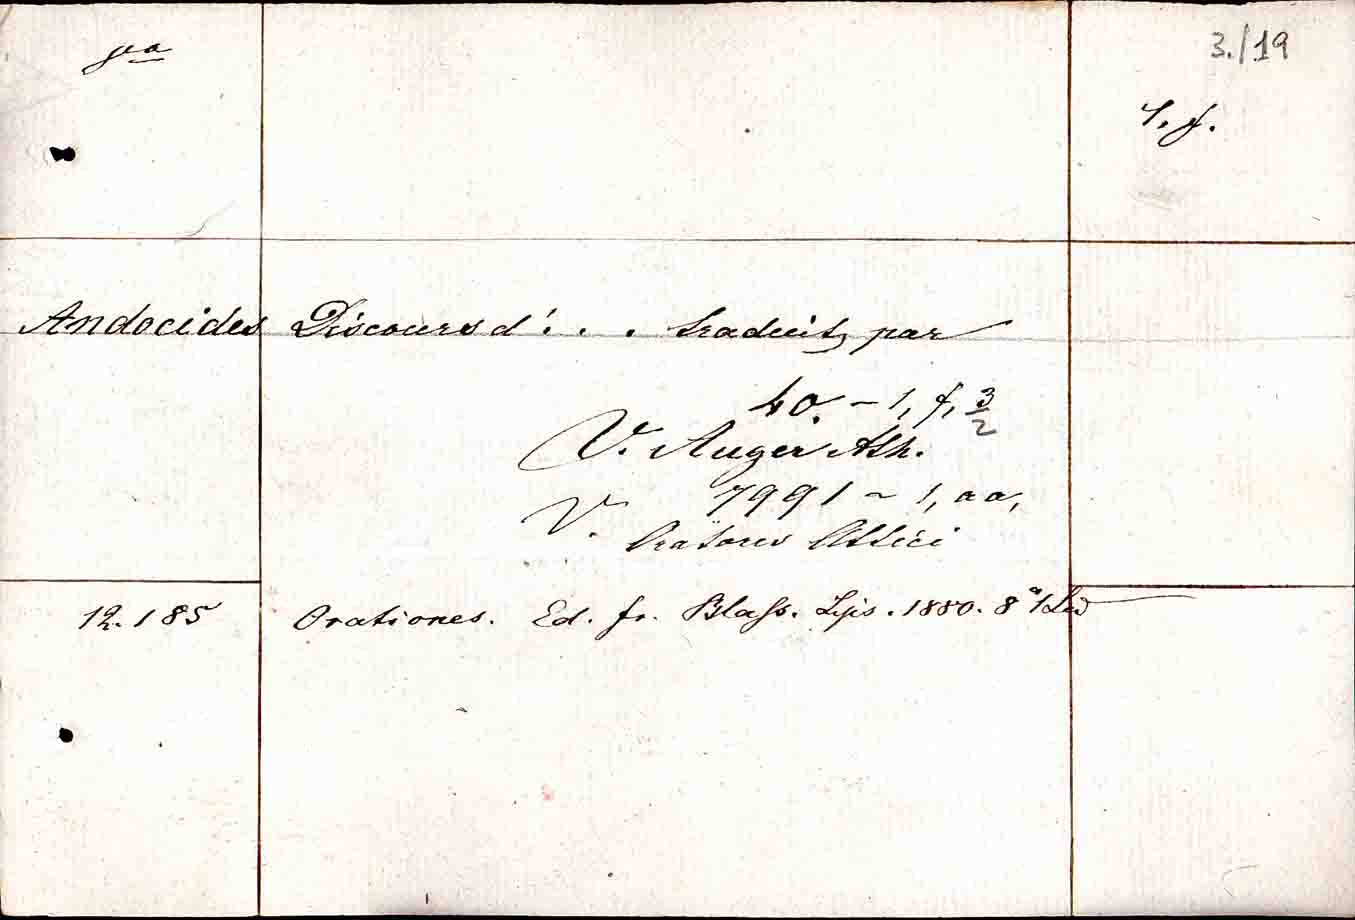 3./19
1. f.
Andocides Discours d'. . . traduits par
40. – 1, f, 3/2
V. Auger Ath.
V. 7991 ~ 1, aa,
Oratores Attici
12.185 Orationes. Ed. fr. Blass. Lps. 1880. 8°